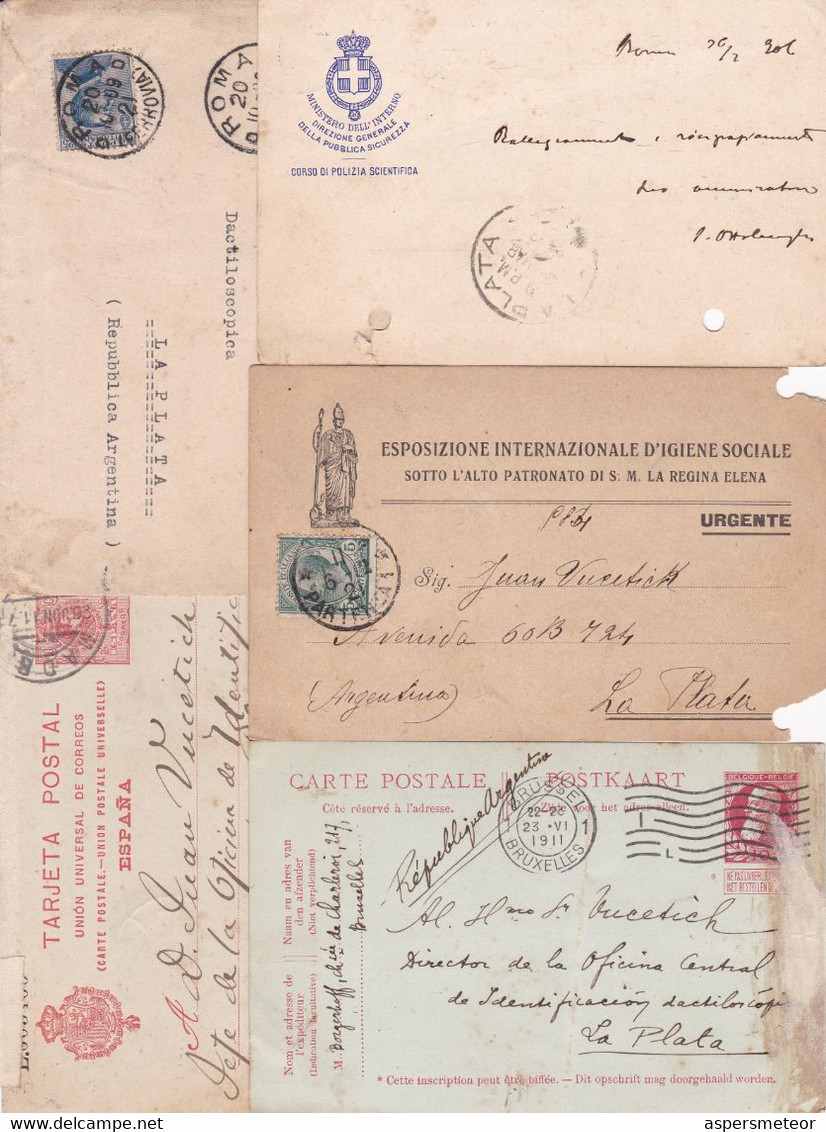 ROMA
20
ROMA
20
Dactiloscopica
LA PLATA
( Repubblica Argentina )
MINISTERO DELL'INTERNO
DIREZIONE GENERALE
DELLA PUBBLICA SICUREZZA
CORSO DI POLIZIA SCIENTIFICA
Roma
LA PLATA
ESPOSIZIONE INTERNAZIONALE D'IGIENE SOCIALE
SOTTO L'ALTO PATRONATO DI S. M. LA REGINA ELENA
URGENTE
Sig. Juan Vucetich
Avenida 60 B 724
(Argentina) La Plata
TARJETA POSTAL
UNIÓN UNIVERSAL DE CORREOS
(CARTE POSTALE.-UNION POSTALE UNIVERSELLE)
ESPAÑA
A D. Juan Vucetich
Jefe de la Oficina de Identific
CARTE POSTALE POSTKAART
Côté réservé à l'adresse. Zijde voor het adres alleen.
BELGIQUE-BELGIË
BRUSSEL
22-23
23 -VI
1911
BRUXELLES
1
République Argentina
Naam en adres van
den afzender
(Niet verplichtend)
Nom et adresse de
l'expéditeur
(Indication facultative)
M. Borgerhoff, ch ée de Charleroi, 217,
Bruxelles
Al Hmo Sr Vucetich
Director de la Oficina Central
de Identificación dactiloscóp
La Plata
* Cette inscription peut être biffée. — Dit opschrift mag doorgehaald worden.
aspersmeteor